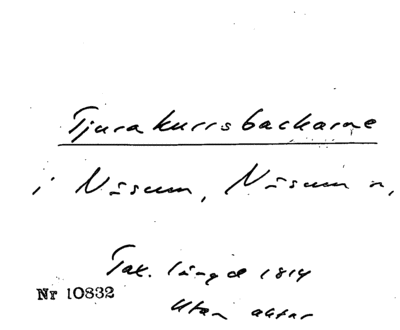 Tjurakurrsbackarne
i Näsum, Näsum n,
Tax. längd 1814
Nr 10832
utan aktor